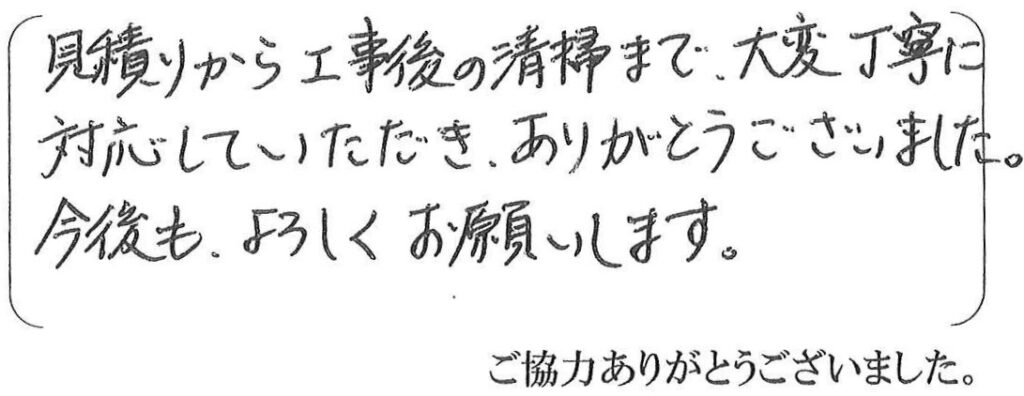 見積りから工事後の清掃まで、大変丁寧に
対応していただき、ありがとうございました。
今後も、よろしくお願いします。
ご協力ありがとうございました。